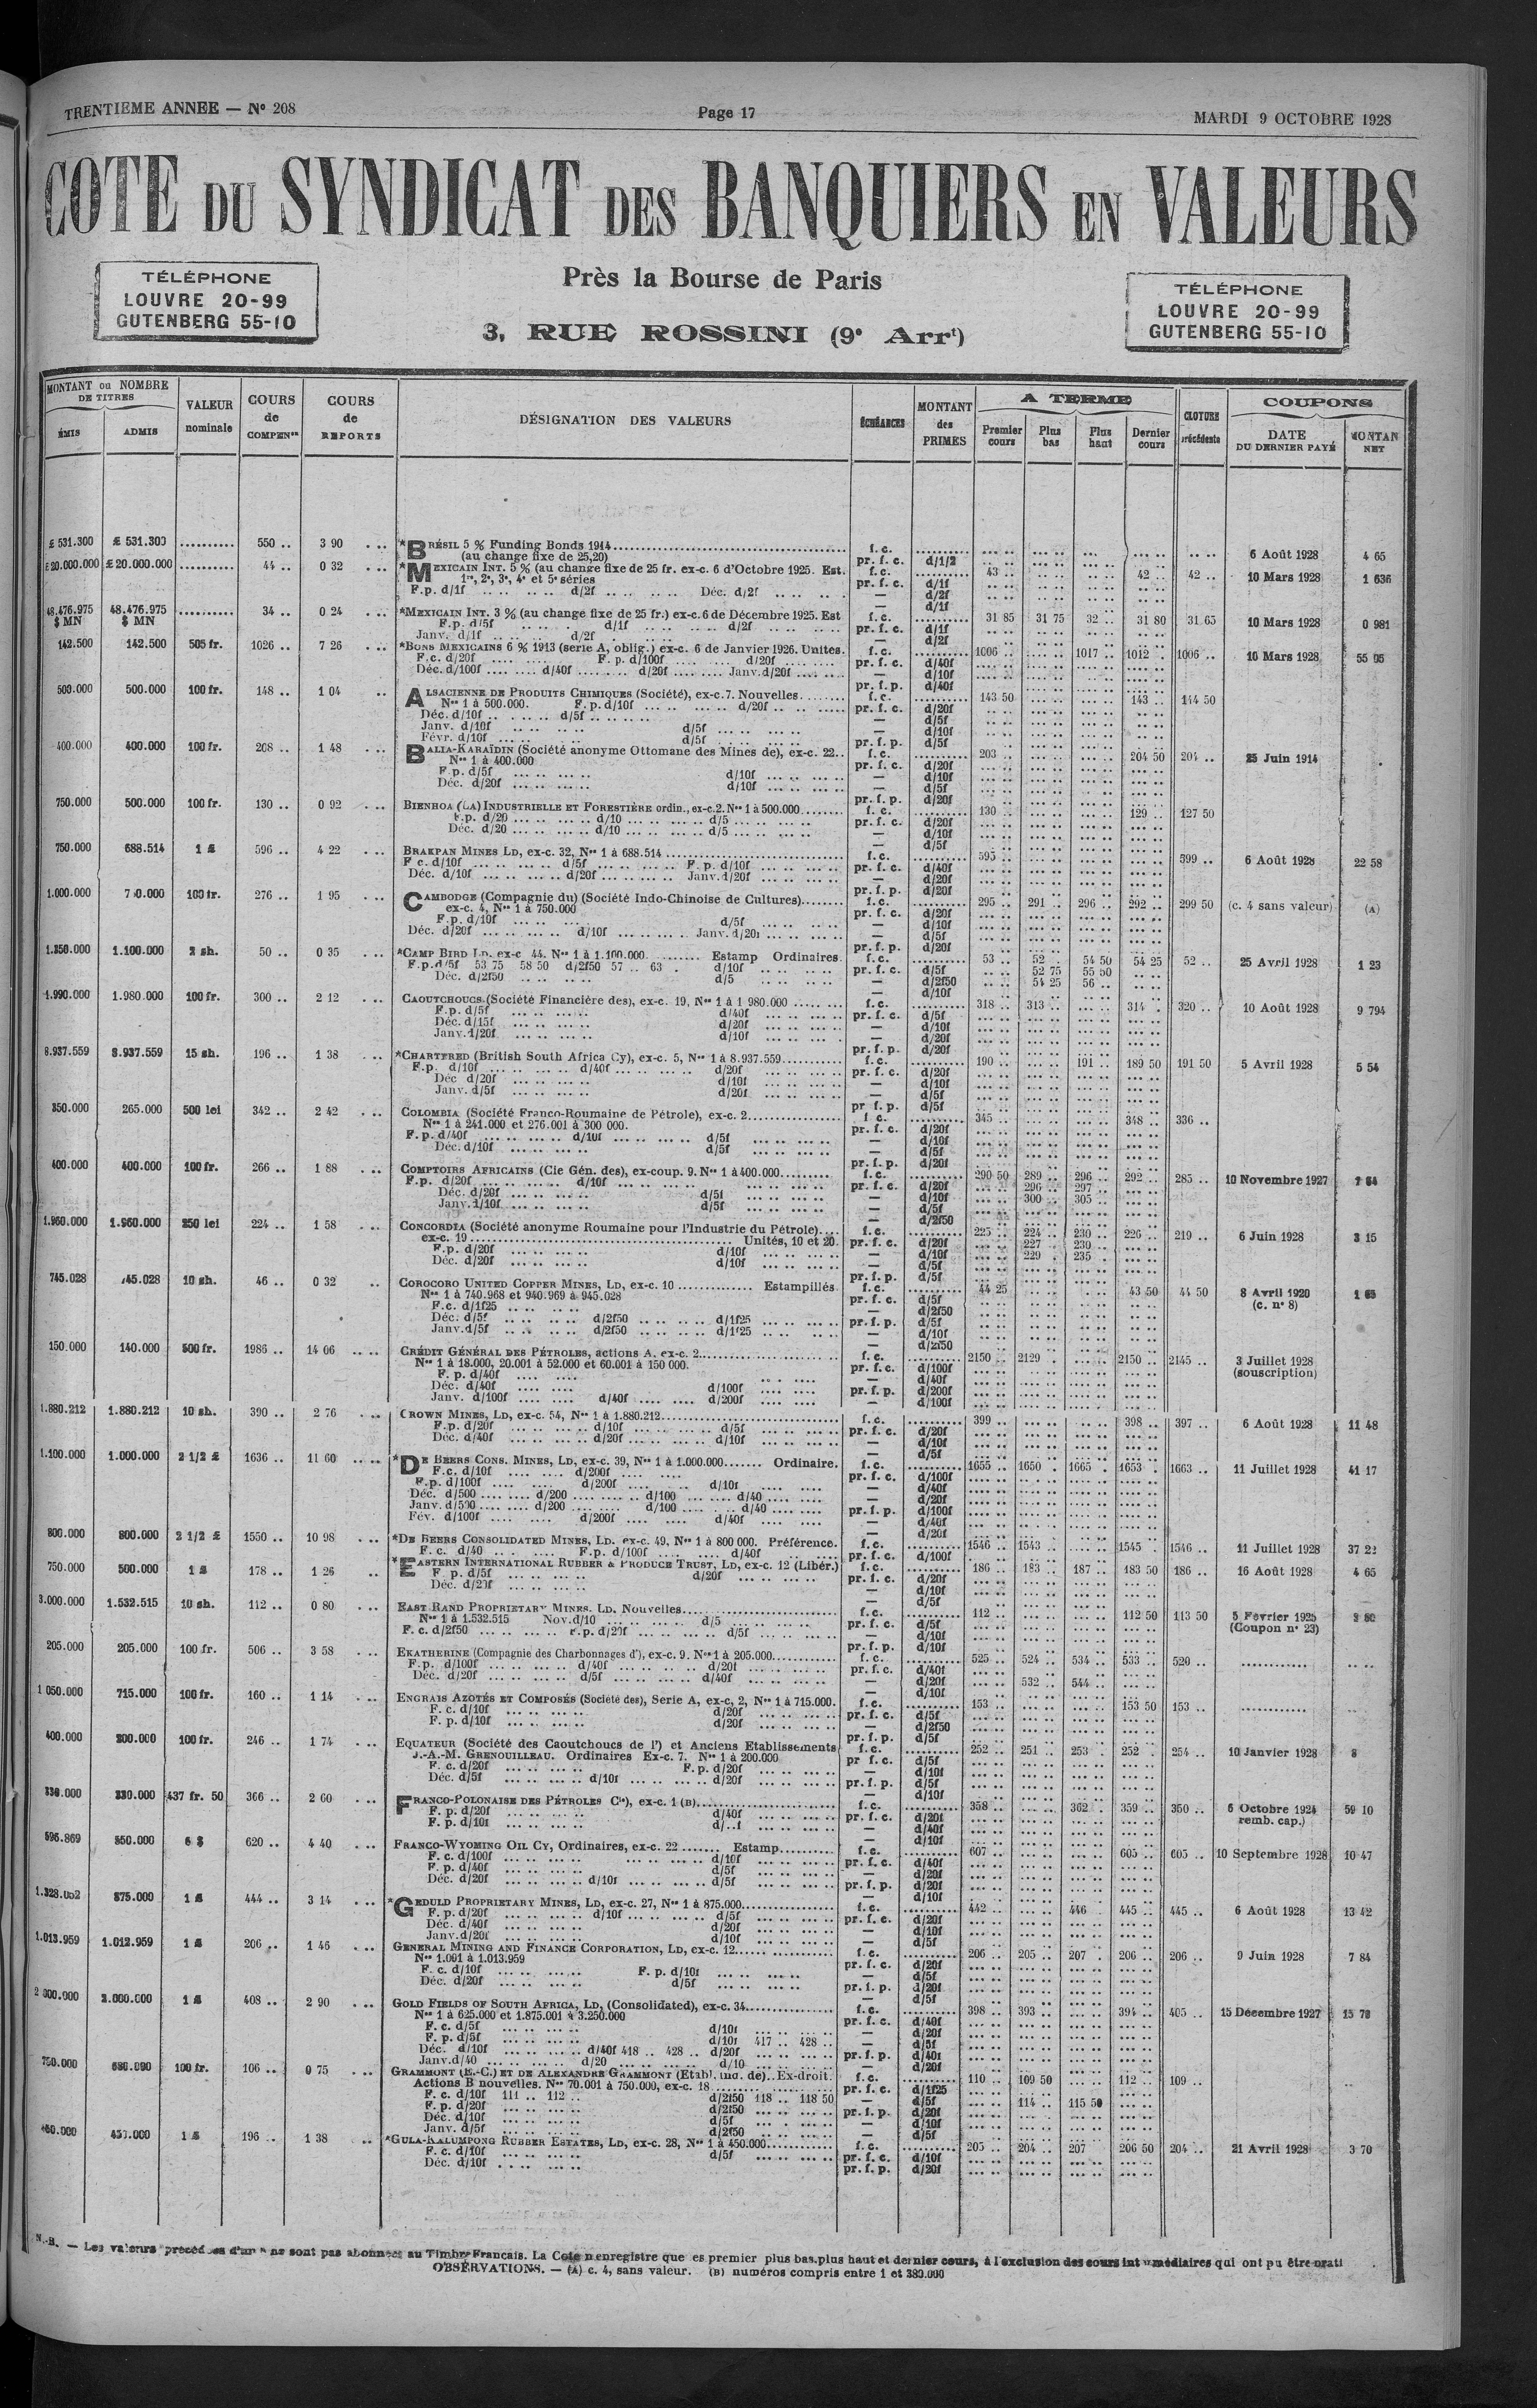 TRENTIEME ANNEE — No 208
Page 17
MARDI 9 OCTOBRE 1928
COTE DU SYNDICAT DES BANQUIERS EN VALEURS
TÉLÉPHONE
LOUVRE 20-99
GUTENBERG 55-10
Près la Bourse de Paris
3, RUE ROSSINI (9e Arrt)
TÉLÉPHONE
LOUVRE 20-99
GUTENBERG 55-10
MONTANT ou NOMBRE DE TITRES ÉMIS ADMIS VALEUR nominale COURS de COMPENon COURS de REPORTS DÉSIGNATION DES VALEURS ÉCHÉANCES MONTANT des PRIMES A TERME Premier cours Plus bas Plus haut Dernier cours CLOTURE précédente COUPONS DATE DU DERNIER PAYÉ MONTAN NET
£ 531.300 £ 531.300 .......... 550 .. 3 90 *BRÉSIL 5 % Funding Bonds 1914 f. c. 6 Août 1928 4 65
(au change fixe de 25,20) pr. f. c. d/1/2
£20.000.000 £20.000.000 .......... 44 .. 0 32 *MEXICAIN INT. 5 % (au change fixe de 25 fr. ex-c. 6 d'Octobre 1925. Est. f. c. 43 .. 42 .. 42 .. 10 Mars 1928 1 636
1re, 2e, 3e, 4e et 5e séries pr. f. c. d/1f
F.p. d/1f d/2f Déc. d/2f — d/2f
48.476.975 $ MN 48.476.975 $ MN .......... 34 .. 0 24 *MEXICAIN INT. 3 % (au change fixe de 25 fr.) ex-c. 6 de Décembre 1925. Est f. c. 31 85 31 75 32 .. 31 80 31 65 10 Mars 1928 0 981
F.p. d/5f d/1f d/2f pr. f. c. d/1f
Janv. d/1f d/2f — d/2f
142.500 142.500 505 fr. 1026 .. 7 26 *BONS MEXICAINS 6 % 1913 (serie A, oblig.) ex-c. 6 de Janvier 1926. Unites. f. c. 1006 .. 1017 .. 1012 .. 1006 .. 10 Mars 1928 55 05
F.c. d/20f F. p. d/100f d/20f pr. f. c. d/40f
Déc. d/100f d/40f d/20f Janv. d/20f — d/10f
pr. f. p. d/40f
500.000 500.000 100 fr. 148 .. 1 04 ALSACIENNE DE PRODUITS CHIMIQUES (Société), ex-c. 7. Nouvelles f. c. 143 50 143 .. 144 50
Nos 1 à 500.000. F. p. d/10f d/20f pr. f. c. d/20f
Déc. d/10f d/5f — d/5f
Janv. d/10f d/5f — d/10f
Févr. d/10f d/5f pr. f. p. d/5f
400.000 400.000 100 fr. 208 .. 1 48 BALIA-KARAÏDIN (Société anonyme Ottomane des Mines de), ex-c. 22.. f. c. 203 .. 204 50 204 .. 25 Juin 1914
Nos 1 à 400.000 pr. f. c. d/20f
F.p. d/5f d/10f — d/10f
Déc. d/20f d/10f — d/5f
pr. f. p. d/20f
750.000 500.000 100 fr. 130 .. 0 92 BIENHOA (LA) INDUSTRIELLE ET FORESTIÈRE ordin., ex-c. 2. Nos 1 à 500.000 f. c. 130 .. 129 .. 127 50
F.p. d/20 d/10 d/5 pr. f. c. d/20f
Déc. d/20 d/10 d/5 — d/10f
— d/5f
750.000 688.514 1 £ 596 .. 4 22 BRAKPAN MINES LD, ex-c. 32, Nos 1 à 688.514 f. c. 595 .. 599 .. 6 Août 1928 22 58
F c. d/10f d/5f F. p. d/10f pr. f. c. d/40f
Déc. d/10f d/20f Janv. d/20f — d/20f
pr. f. p. d/20f
1.000.000 100 fr. 276 .. 1 95 CAMBODGE (Compagnie du) (Société Indo-Chinoise de Cultures) f. c. 295 .. 291 .. 296 .. 292 .. 299 50 (c. 4 sans valeur) (A)
ex-c. 4, Nos 1 à 750.000 pr. f. c. d/20f
F.p. d/10f d/5f — d/10f
Déc. d/20f d/10f Janv. d/20f — d/5f
pr. f. p. d/20f
1.350.000 1.100.000 2 sh. 50 .. 0 35 *CAMP BIRD LD. ex-c 44. Nos 1 à 1.100.000. Estamp Ordinaires. f. c. 53 .. 52 .. 54 50 54 25 52 .. 25 Avril 1928 1 23
F.p. d/5f 53 75 58 50 d/2f50 57 .. 63 . d/10f pr. f. c. d/5f 52 75 55 50
Déc. d/2f50 d/5 — d/2f50 54 25 56 ..
— d/10f
1.990.000 1.980.000 100 fr. 300 .. 2 12 CAOUTCHOUCS (Société Financière des), ex-c. 19, Nos 1 à 1 980.000 f. c. 318 .. 313 .. 314 . 320 .. 10 Août 1928 9 794
F.p. d/5f d/40f pr. f. c. d/5f
Déc. d/15f d/20f — d/10f
Janv. d/20f d/10f — d/20f
pr. f. p. d/20f
8.937.559 8.937.559 15 sh. 196 .. 1 38 *CHARTERED (British South Africa Cy), ex-c. 5, Nos 1 à 8.937.559 f. c. 190 .. 191 .. 189 50 191 50 5 Avril 1928 5 54
F.p. d/10f d/40f d/20f pr. f. c. d/20f
Déc d/20f d/10f — d/10f
Janv. d/5f d/20f — d/5f
pr f. p. d/5f
350.000 265.000 500 lei 342 .. 2 42 COLOMBIA (Société Franco-Roumaine de Pétrole), ex-c. 2 f c. 345 .. 348 .. 336 ..
Nos 1 à 241.000 et 276.001 à 300 000. pr. f. c. d/20f
F. p. d/40f d/10f d/5f — d/10f
Déc. d/10f d/5f — d/5f
pr. f. p. d/20f
400.000 400.000 100 fr. 266 .. 1 88 COMPTOIRS AFRICAINS (Cie Gén. des), ex-coup. 9. Nos 1 à 400.000 f. c. 290 50 289 .. 296 .. 292 .. 285 .. 10 Novembre 1927
F.p. d/20f d/10f pr. f. c. d/20f 296 .. 297 ..
Déc. d/20f d/5f — d/10f 300 .. 305 ..
Janv. d/10f d/5f — d/5f
— d/2f50
1.960.000 1.960.000 250 lei 224 .. 1 58 CONCORDIA (Société anonyme Roumaine pour l'Industrie du Pétrole) f. c. 225 .. 224 .. 230 .. 226 .. 219 .. 6 Juin 1928 3 15
ex-c. 19 Unités, 10 et 20. pr. f. c. d/20f 227 . 230 ..
F.p. d/20f d/10f — d/10f 229 . 235 .
Déc. d/20f d/10f — d/5f
pr. f. p. d/5f
745.028 745.028 10 sh. 46 .. 0 32 COROCORO UNITED COPPER MINES, LD, ex-c. 10 Estampillés f. c. 44 25 43 50 44 50 8 Avril 1920 (c. no 8)
Nos 1 à 740.968 et 940.969 à 945.028 pr. f. c. d/5f
F.c. d/1f25 — d/2f50
Déc. d/5f d/2f50 d/1f25 pr. f. p. d/5f
Janv. d/5f d/2f50 d/1f25 — d/10f
— d/2f50
150.000 140.000 500 fr. 1986 .. 14 06 CRÉDIT GÉNÉRAL DES PÉTROLES, actions A. ex-c. 2 f. c. 2150 .. 2129 . 2150 .. 2145 .. 3 Juillet 1928 (souscription)
Nos 1 à 18.000, 20.001 à 52.000 et 60.001 à 150 000. pr. f. c. d/100f
F. p. d/40f — d/40f
Déc. d/40f d/100f pr. f. p. d/200f
Janv. d/100f d/40f d/200f — d/100f
1.880.212 1.880.212 10 sh. 390 .. 2 76 CROWN MINES, LD, ex-c. 54, Nos 1 à 1.880.212 f. c. 399 .. 398 .. 397 .. 6 Août 1928 11 48
F.p. d/20f d/10f d/5f pr. f. c. d/20f
Déc. d/40f d/20f d/10f — d/10f
— d/5f
1.100.000 1.000.000 2 1/2 £ 1636 .. 11 60 *DE BEERS CONS. MINES, LD, ex-c. 39, Nos 1 à 1.000.000 Ordinaire. f. c. 1655 .. 1650 . 1665 . 1653 . 1663 .. 11 Juillet 1928 41 17
F.c. d/10f d/200f pr. f. c. d/100f
F.p. d/100f d/200f d/10f — d/40f
Déc. d/500 d/200 d/100 d/40 — d/20f
Janv. d/500 d/200 d/100 d/40 pr. f. p. d/100f
Fév. d/100f d/200f d/40f — d/40f
— d/20f
800.000 800.000 2 1/2 £ 1550 .. 10 98 *DE BEERS CONSOLIDATED MINES, LD. ex-c. 49, Nos 1 à 800 000. Préférence. f. c. 1546 .. 1543 .. 1545 . 1546 .. 11 Juillet 1928 37 22
F. c. d/40 F.p. d/100f d/40f pr. f. c. d/100f
750.000 500.000 1 £ 178 .. 1 26 *EASTERN INTERNATIONAL RUBBER & PRODUCE TRUST, LD, ex-c. 12 (Libér.) f. c. 186 .. 183 .. 187 .. 183 50 186 .. 16 Août 1928 4 65
F p. d/5f d/20f pr. f. c. d/20f
Déc. d/20f — d/10f
— d/5f
3.000.000 1.532.515 10 sh. 112 .. 0 80 EAST RAND PROPRIETARY MINES. LD. Nouvelles f. c. 112 .. 112 50 113 50 5 Février 1925 (Coupon no 23)
Nos 1 à 1.532.515 Nov. d/10 d/5 pr. f. c. d/5f
F. c. d/2f50 F.p. d/20f d/5f — d/10f
pr. f. p. d/10f
205.000 205.000 100 fr. 506 .. 3 58 EKATHERINE (Compagnie des Charbonnages d'), ex-c. 9. Nos 1 à 205.000 f. c. 525 .. 524 .. 534 .. 533 .. 520 ..
F.p. d/100f d/40f d/20f pr. f. c. d/40f
Déc. d/20f d/5f d/40f — d/20f 532 .. 544 ..
— d/10f
1 050.000 715.000 100 fr. 160 .. 1 14 ENGRAIS AZOTÉS ET COMPOSÉS (Société des), Serie A, ex-c, 2, Nos 1 à 715.000. f. c. 153 .. 153 50 153 ..
F. c. d/10f d/20f pr. f. c. d/5f
F. p. d/10f d/20f — d/2f50
pr. f. p. d/5f
400.000 200.000 100 fr. 246 .. 1 74 EQUATEUR (Société des Caoutchoucs de l') et Anciens Etablissements f. c. 252 .. 251 .. 253 . 252 . 254 .. 10 Janvier 1928 8
J.-A.-M. GRENOUILLEAU. Ordinaires Ex-c. 7. Nos 1 à 200.000 pr f. c. d/5f
F. c. d/20f F. p. d/20f — d/10f
Déc. d/5f d/10f d/20f pr. f. p. d/5f
— d/10f
330.000 330.000 437 fr. 50 366 .. 2 60 FRANCO-POLONAISE DES PÉTROLES Cie), ex-c. 1 (B) f. c. 358 .. 362 . 359 .. 350 .. 6 Octobre 1924 remb. cap.) 59 10
F. p. d/20f d/40f pr. f. c. d/20f
F. p. d/10f d/..f — d/40f
— d/10f
596.869 550.000 6 $ 620 .. 4 40 FRANCO-WYOMING OIL CY, Ordinaires, ex-c. 22 Estamp f. c. 607 .. 605 .. 605 .. 10 Septembre 1928 10 47
F. c. d/100f d/10f pr. f. c. d/40f
F. p. d/40f d/5f — d/20f
Déc. d/20f d/10f d/5f pr. f. p. d/20f
— d/10f
875.000 1 £ 444 .. 3 14 *GEDULD PROPRIETARY MINES, LD, ex-c. 27, Nos 1 à 875.000 f. c. 442 .. 446 . 445 .. 445 .. 6 Août 1928 13 42
F. p. d/20f d/10f d/5f pr. f. c. d/20f
Déc. d/40f d/20f — d/10f
Janv. d/20f d/10f — d/5f
1.013.959 1.012.959 1 £ 206 .. 1 46 GENERAL MINING AND FINANCE CORPORATION, LD, ex-c. 12 f. c. 206 .. 205 .. 207 . 206 .. 206 .. 9 Juin 1928 7 84
Nos 1.001 à 1.013.959 pr. f. c. d/20f
F. c. d/10f F. p. d/10f — d/5f
Déc. d/20f d/5f pr. f. p. d/20f
— d/5f
2.000.000 1 £ 408 .. 2 90 GOLD FIELDS OF SOUTH AFRICA, LD, (Consolidated), ex-c. 34 f. c. 398 .. 393 .. 394 .. 405 .. 15 Décembre 1927 15 78
Nos 1 à 625.000 et 1.875.001 à 3.250.000 pr. f. c. d/40f
F. c. d/5f d/10f — d/20f
F. p. d/5f d/10f 417 .. 428 .. — d/5f
Déc. d/10f d/40f 418 .. 428 .. d/20f pr. f. p. d/40f
Janv. d/40 d/20 d/10 — d/20f
750.000 680.000 100 fr. 106 .. 0 75 GRAMMONT (E.-C.) ET DE ALEXANDRE GRAMMONT (Etabl. ind. de).. Ex-droit. f. c. 110 .. 109 50 112 .. 109 ..
Actions B nouvelles. Nos 70.001 à 750.000, ex-c. 18 pr. f. c. d/1f25
F. c. d/10f 111 .. 112 .. d/2f50 118 .. 118 50 — d/5f 114 .. 115 50
F. p. d/20f d/2f50 pr. f. p. d/20f
Déc. d/10f d/5f — d/10f
Janv. d/5f d/2f50 — d/5f
450.000 1 £ 196 .. 1 38 *GULA-KALUMPONG RUBBER ESTATES, LD, ex-c. 28, Nos 1 à 450.000 f. c. 205 .. 204 .. 207 206 50 204 .. 21 Avril 1928 3 70
F. c. d/10f d/5f pr. f. c. d/10f
Déc. d/10f pr. f. p. d/20f
N.-B. — Les valeurs précédées d'un * ne sont pas abonnées au Timbre Français. La Cote n enregistre que es premier plus bas, plus haut et dernier cours, à l'exclusion des cours intermédiaires qui ont pu être prati
OBSERVATIONS. — (A) c. 4, sans valeur. (B) numéros compris entre 1 et 380.000